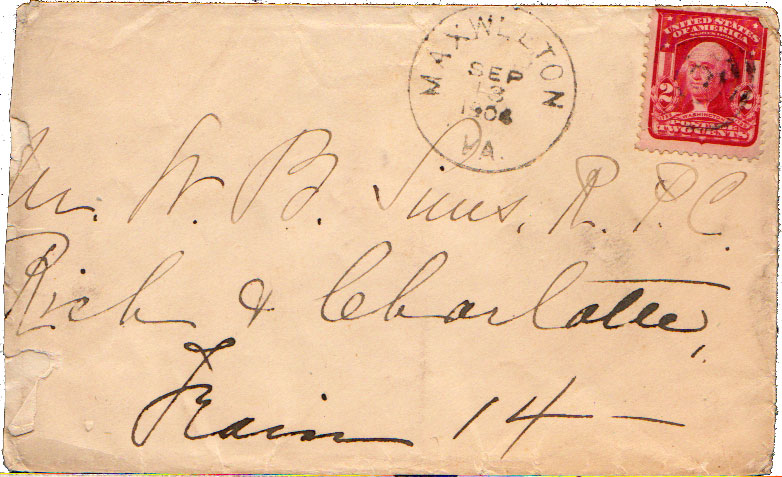 MAXWELTON
SEP
13
1904
VA.
UNITED STATES
OF AMERICA
2
WASHINGTON
POSTAGE
TWO CENTS
Mr. W. B. Sims, R. P. C.
Rich & Charlotte,
Train 14 —